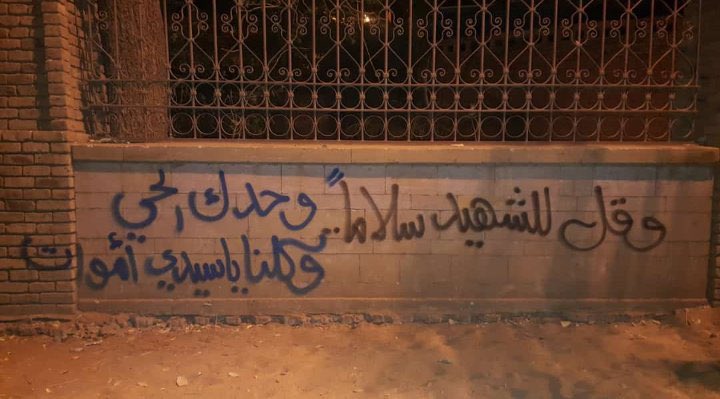 وقل للشهيد سلاماً.. وحدك الحي
وكلنا ياسيدي أموات